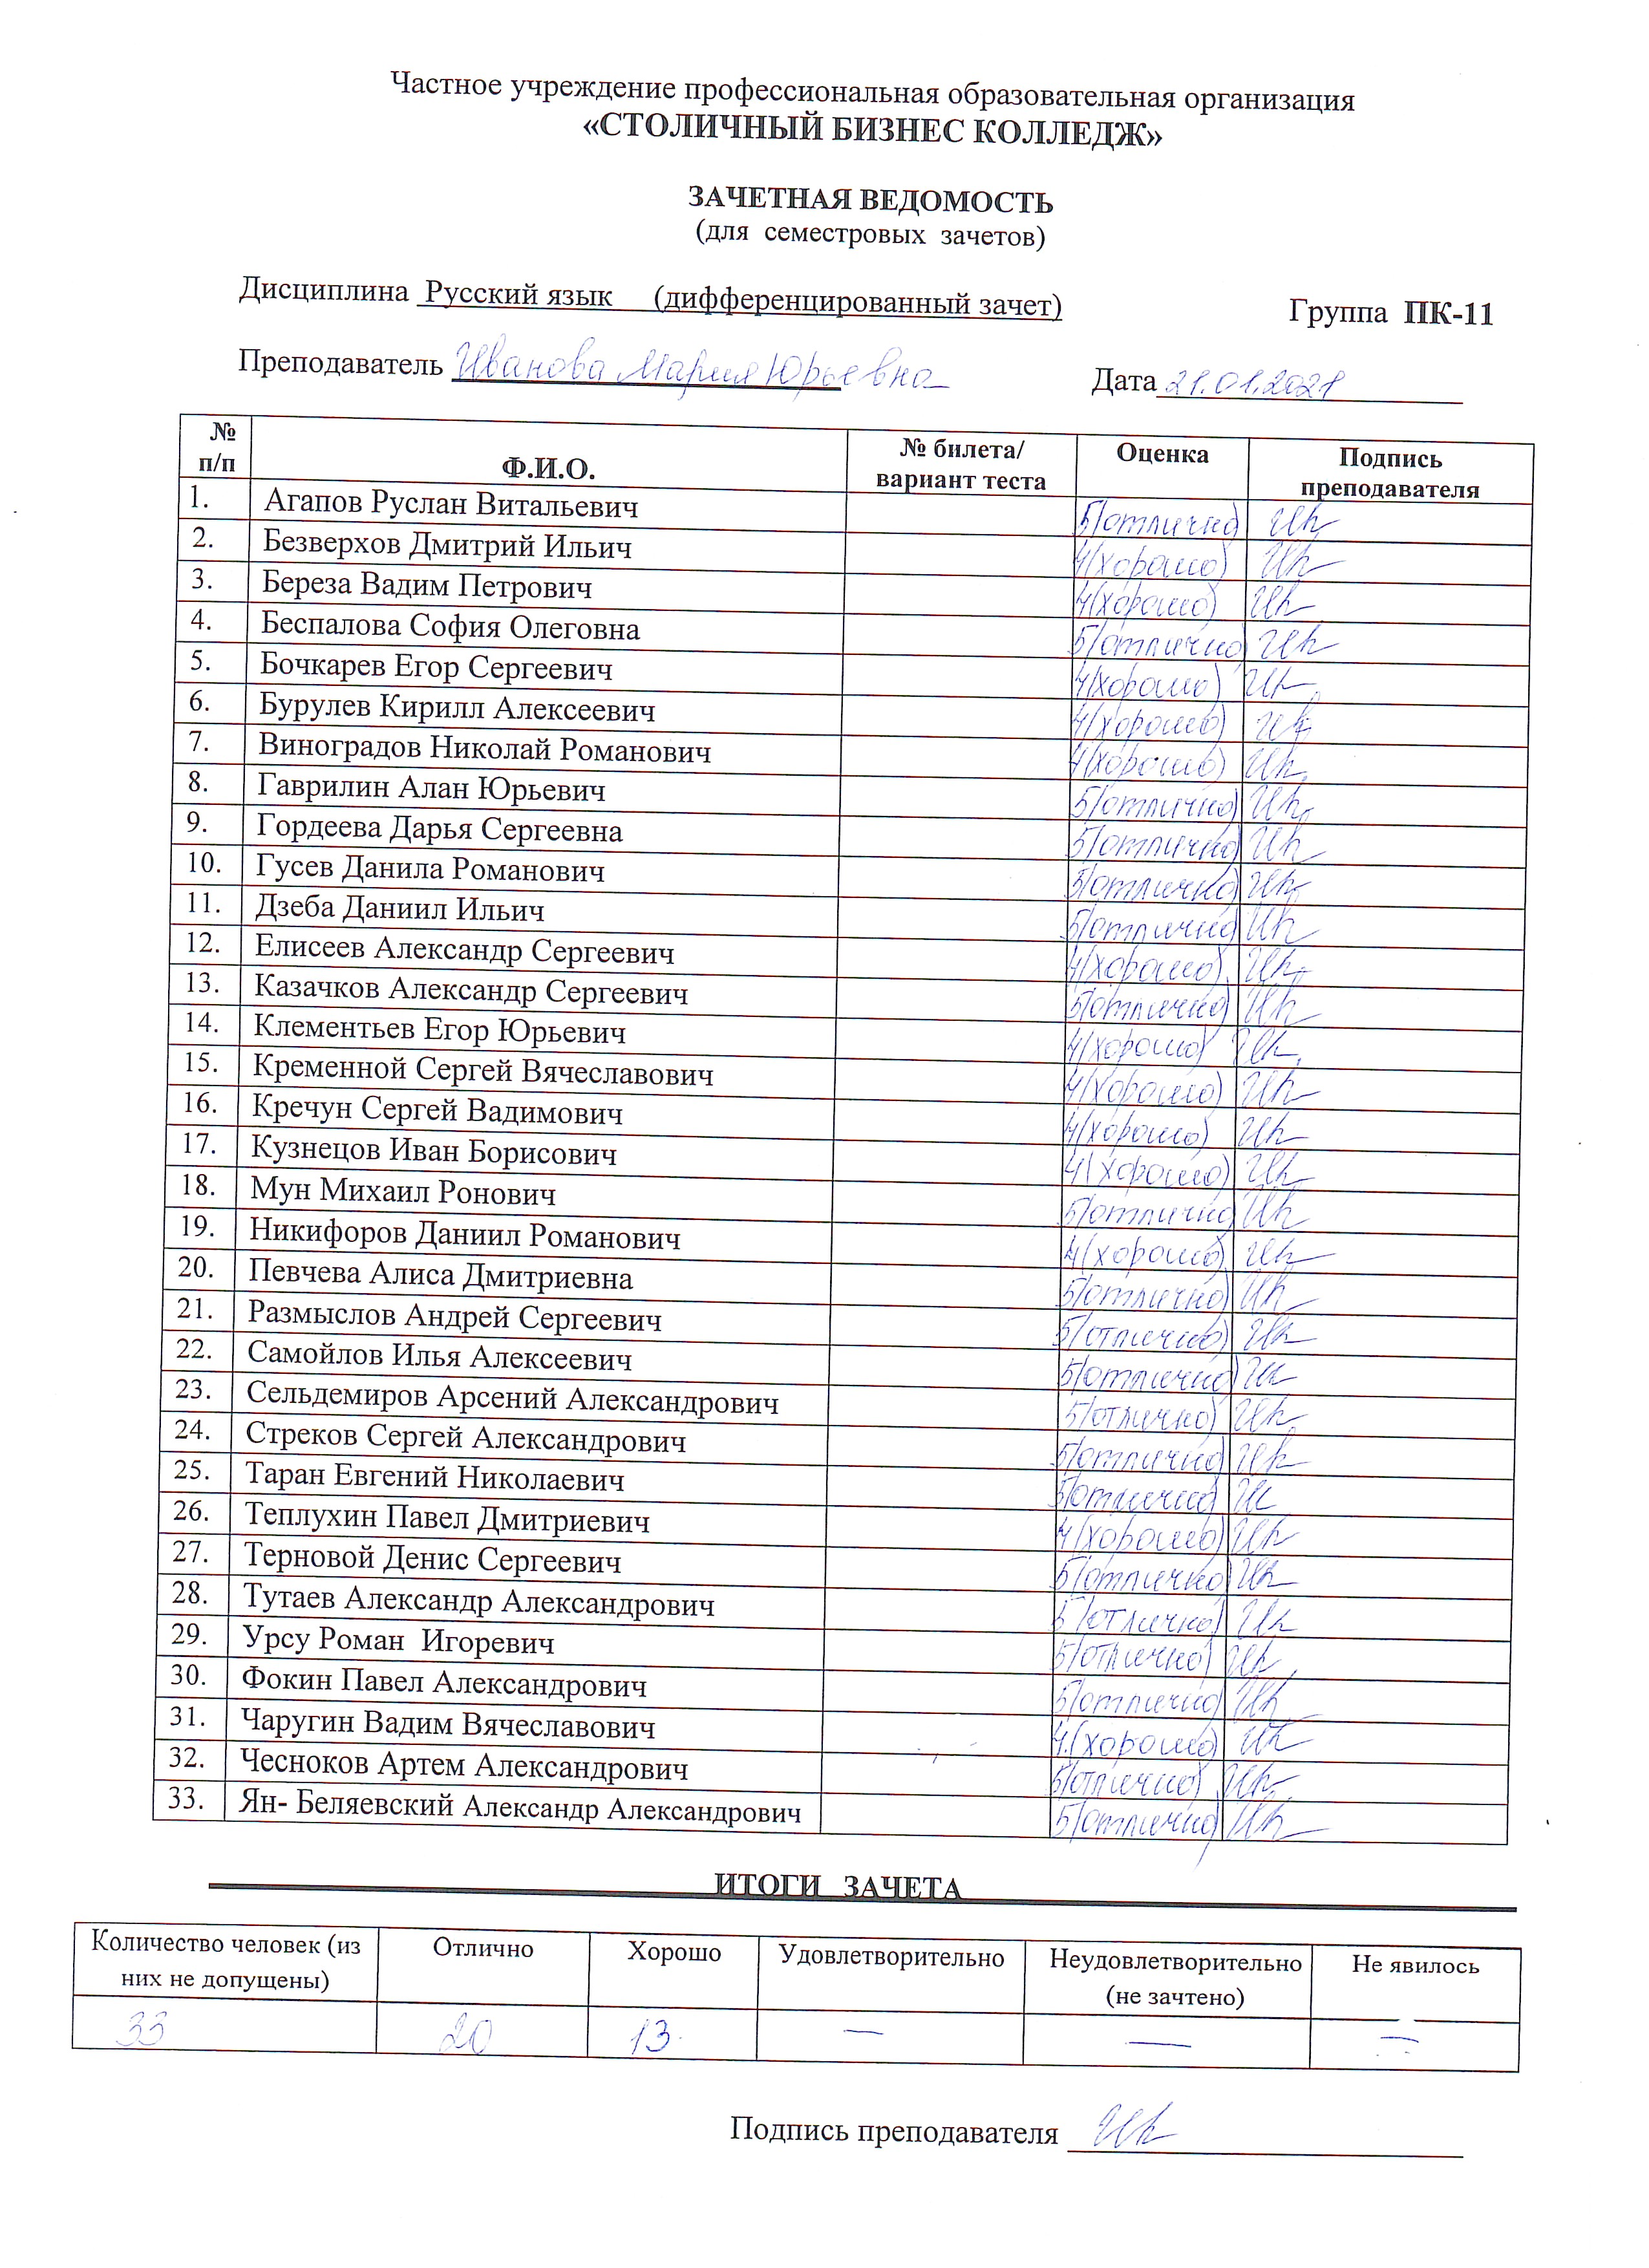 Частное учреждение профессиональная образовательная организация
«СТОЛИЧНЫЙ БИЗНЕС КОЛЛЕДЖ»
ЗАЧЕТНАЯ ВЕДОМОСТЬ
(для семестровых зачетов)
Дисциплина Русский язык (дифференцированный зачет) Группа ПК-11
Преподаватель Иванова Мария Юрьевна Дата 21.01.2021
№ п/п Ф.И.О. № билета/ вариант теста Оценка Подпись преподавателя
1. Агапов Руслан Витальевич 5(отлично)
2. Безверхов Дмитрий Ильич 4(хорошо)
3. Береза Вадим Петрович 4(хорошо)
4. Беспалова София Олеговна 5(отлично)
5. Бочкарев Егор Сергеевич 4(хорошо)
6. Бурулев Кирилл Алексеевич 4(хорошо)
7. Виноградов Николай Романович 4(хорошо)
8. Гаврилин Алан Юрьевич 5(отлично)
9. Гордеева Дарья Сергеевна 5(отлично)
10. Гусев Данила Романович 5(отлично)
11. Дзеба Даниил Ильич 5(отлично)
12. Елисеев Александр Сергеевич 4(хорошо)
13. Казачков Александр Сергеевич 5(отлично)
14. Клементьев Егор Юрьевич 4(хорошо)
15. Кременной Сергей Вячеславович 4(хорошо)
16. Кречун Сергей Вадимович 4(хорошо)
17. Кузнецов Иван Борисович 4(хорошо)
18. Мун Михаил Ронович 5(отлично)
19. Никифоров Даниил Романович 4(хорошо)
20. Певчева Алиса Дмитриевна 5(отлично)
21. Размыслов Андрей Сергеевич 5(отлично)
22. Самойлов Илья Алексеевич 5(отлично)
23. Сельдемиров Арсений Александрович 5(отлично)
24. Стреков Сергей Александрович 5(отлично)
25. Таран Евгений Николаевич 5(отлично)
26. Теплухин Павел Дмитриевич 4(хорошо)
27. Терновой Денис Сергеевич 5(отлично)
28. Тутаев Александр Александрович 5(отлично)
29. Урсу Роман Игоревич 5(отлично)
30. Фокин Павел Александрович 5(отлично)
31. Чаругин Вадим Вячеславович 4(хорошо)
32. Чесноков Артем Александрович 5(отлично)
33. Ян- Беляевский Александр Александрович 5(отлично)
ИТОГИ ЗАЧЕТА
Количество человек (из них не допущены) Отлично Хорошо Удовлетворительно Неудовлетворительно (не зачтено) Не явилось
33 20 13 — — —
Подпись преподавателя